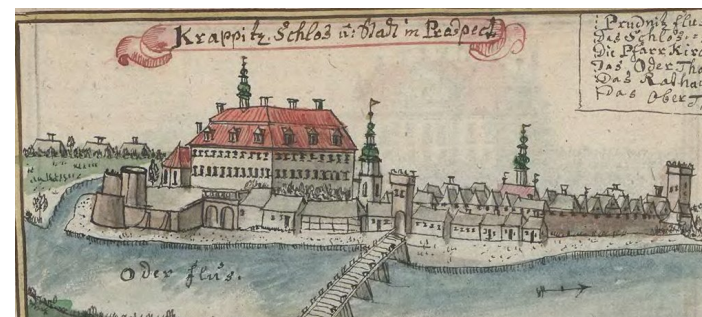 Krappitz. Schlos u: Stadt in Prospect
Prudnitz flu
Das Schlos.
Die Pfarr Kirc
Das Oder Tho
Das Rathau
Das Ober T
Oder flus.